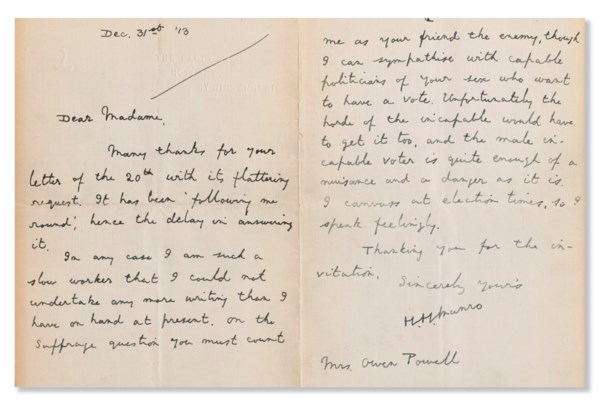 Dec. 31st '13
Dear Madame,
Many thanks for your
letter of the 20th with its flattering
request. It has been 'following me
round', hence the delay in answering
it.
In any case I am such a
slow worker that I could not
undertake any more writing than I
have on hand at present. On the
Suffrage question you must count
me as your friend the enemy, though
I can sympathise with capable
politicians of your sex who want
to have a vote. Unfortunately the
horde of the incapable would have
to get it too, and the male in-
capable voter is quite enough of a
nuisance and a danger as it is.
I canvass at election times, so I
speak feelingly.
Thanking you for the in-
vitation.
Sincerely yours
H.H. Munro
Mrs. Owen Powell